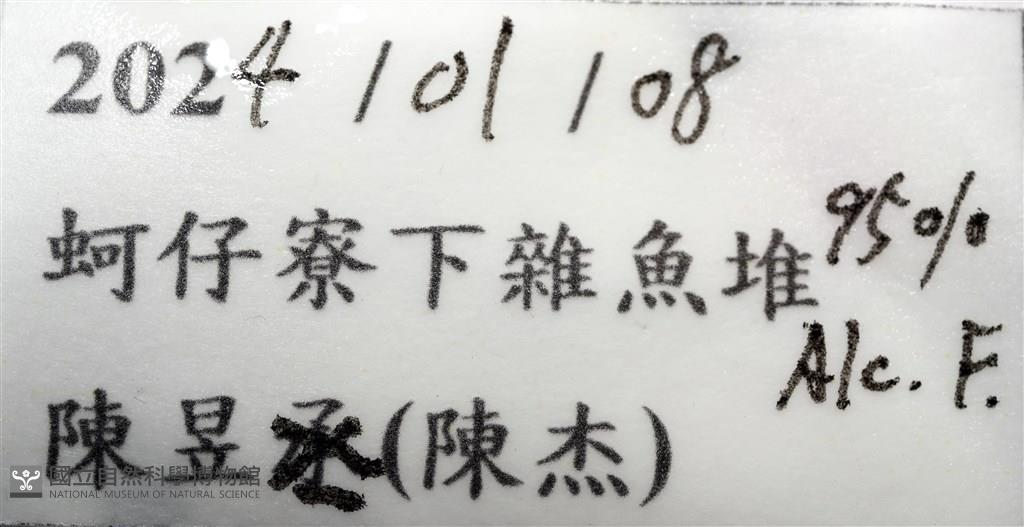 2024/01/08
蚵仔寮下雜魚堆
95%
Alc. F.
陳昱丞(陳杰)
國立自然科學博物館
NATIONAL MUSEUM OF NATURAL SCIENCE